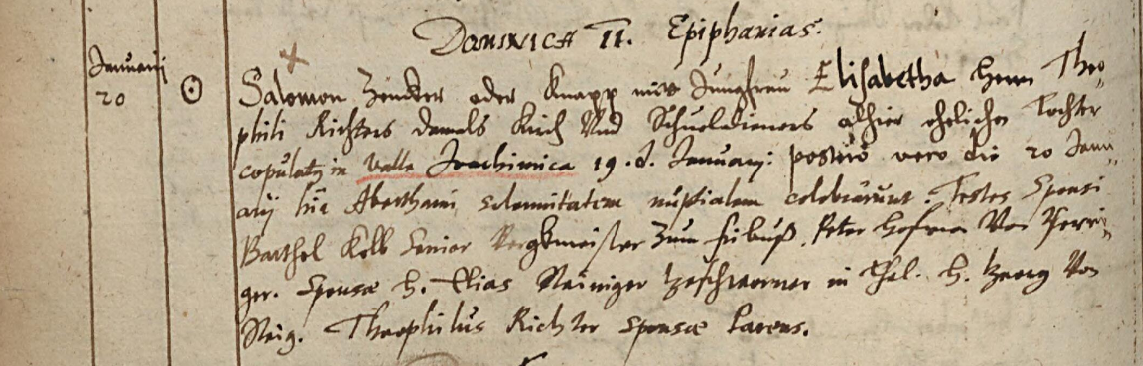 Dominica II. Epiphanias.
Januarij
20
Salomon Zencker oder Knapp mit Jungfrau Elisabetha Herrn Theo-
phili Richters damals Kirch Und Schueldieners alhier ehelicher Tochter
copulatus in Valle Joachimica 19. d. January: postero vero die 20 Janu-
arij hic Aberthami solennitatem nuptialem celebrarunt. Testes Sponsi
Barthel Kolb Senior Bergkmeister Zum Peter Hofman Von
ger. Sponsæ H. Elias geschworner in Thal. H. Georg Von
Theophilus Richter Sponsæ Parens.